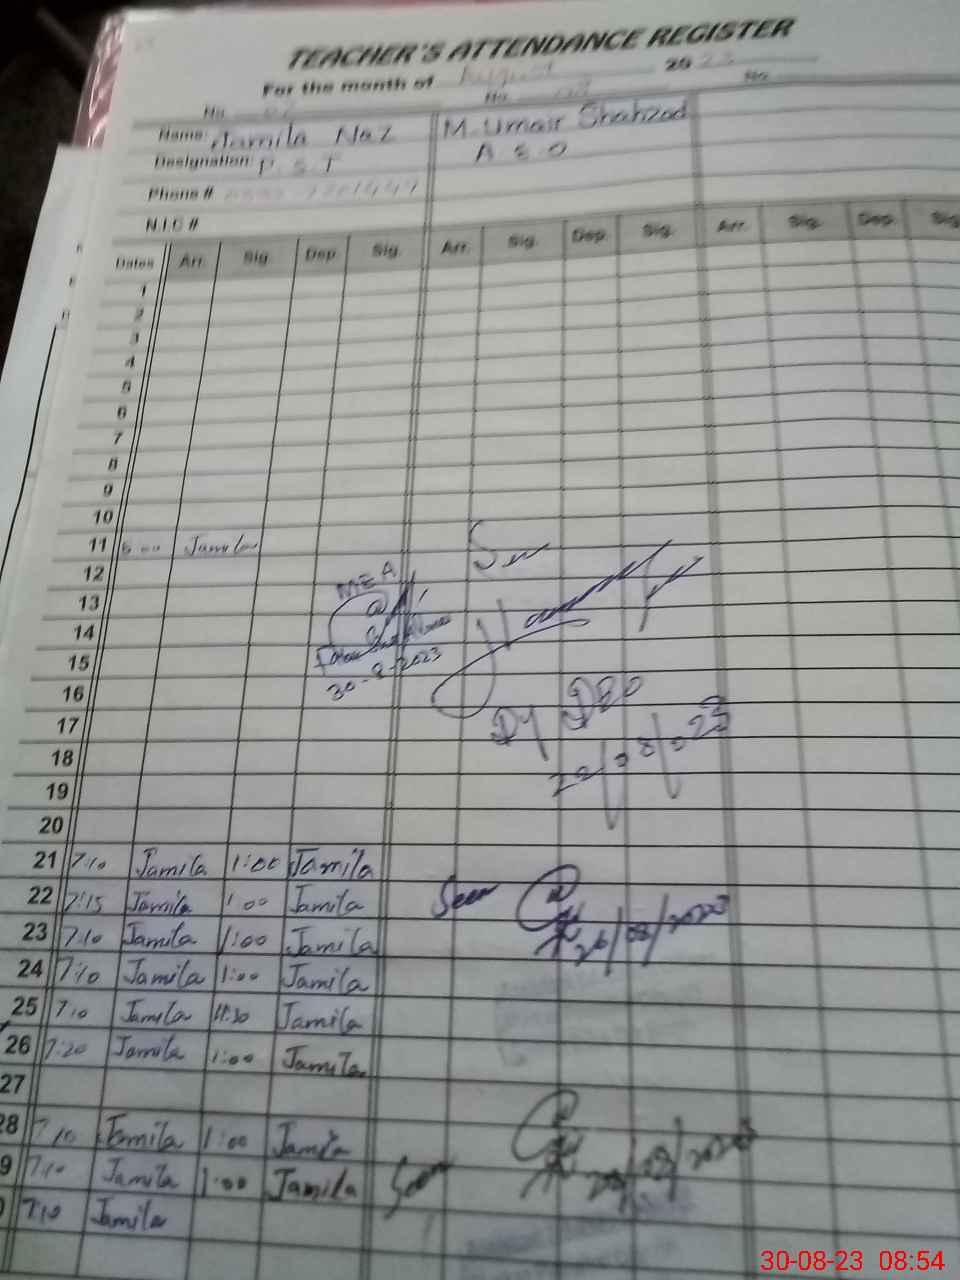 TEACHER'S ATTENDANCE REGISTER
For the month of August 2023
No. No. No.
Name: Jamila Naz M. Umair Shahzad
Designation: P.S.T A.E.O
Phone #
N.I.C #
Dates Arr. Sig. Dep. Sig. Arr. Sig. Dep. Sig. Arr. Sig. Dep. Sig.
1
2
3
4
5
6
7
8
9
10
11 Jamila
12 MEA
13
14
15
16 30-8-2023
17 Dy DEO
18 22/08/023
19
20
21 7:10 Jamila 1:00 Jamila
22 7:15 Jamila 1:00 Jamila Seen
23 7:10 Jamila 1:00 Jamila 26/08/2023
24 7:10 Jamila 1:00 Jamila
25 7:10 Jamila 11:30 Jamila
26 7:20 Jamila 1:00 Jamila
27
28 7:10 Jamila 1:00 Jamila
9 7:10 Jamila 1:00 Jamila Seen
7:10 Jamila
30-08-23 08:54